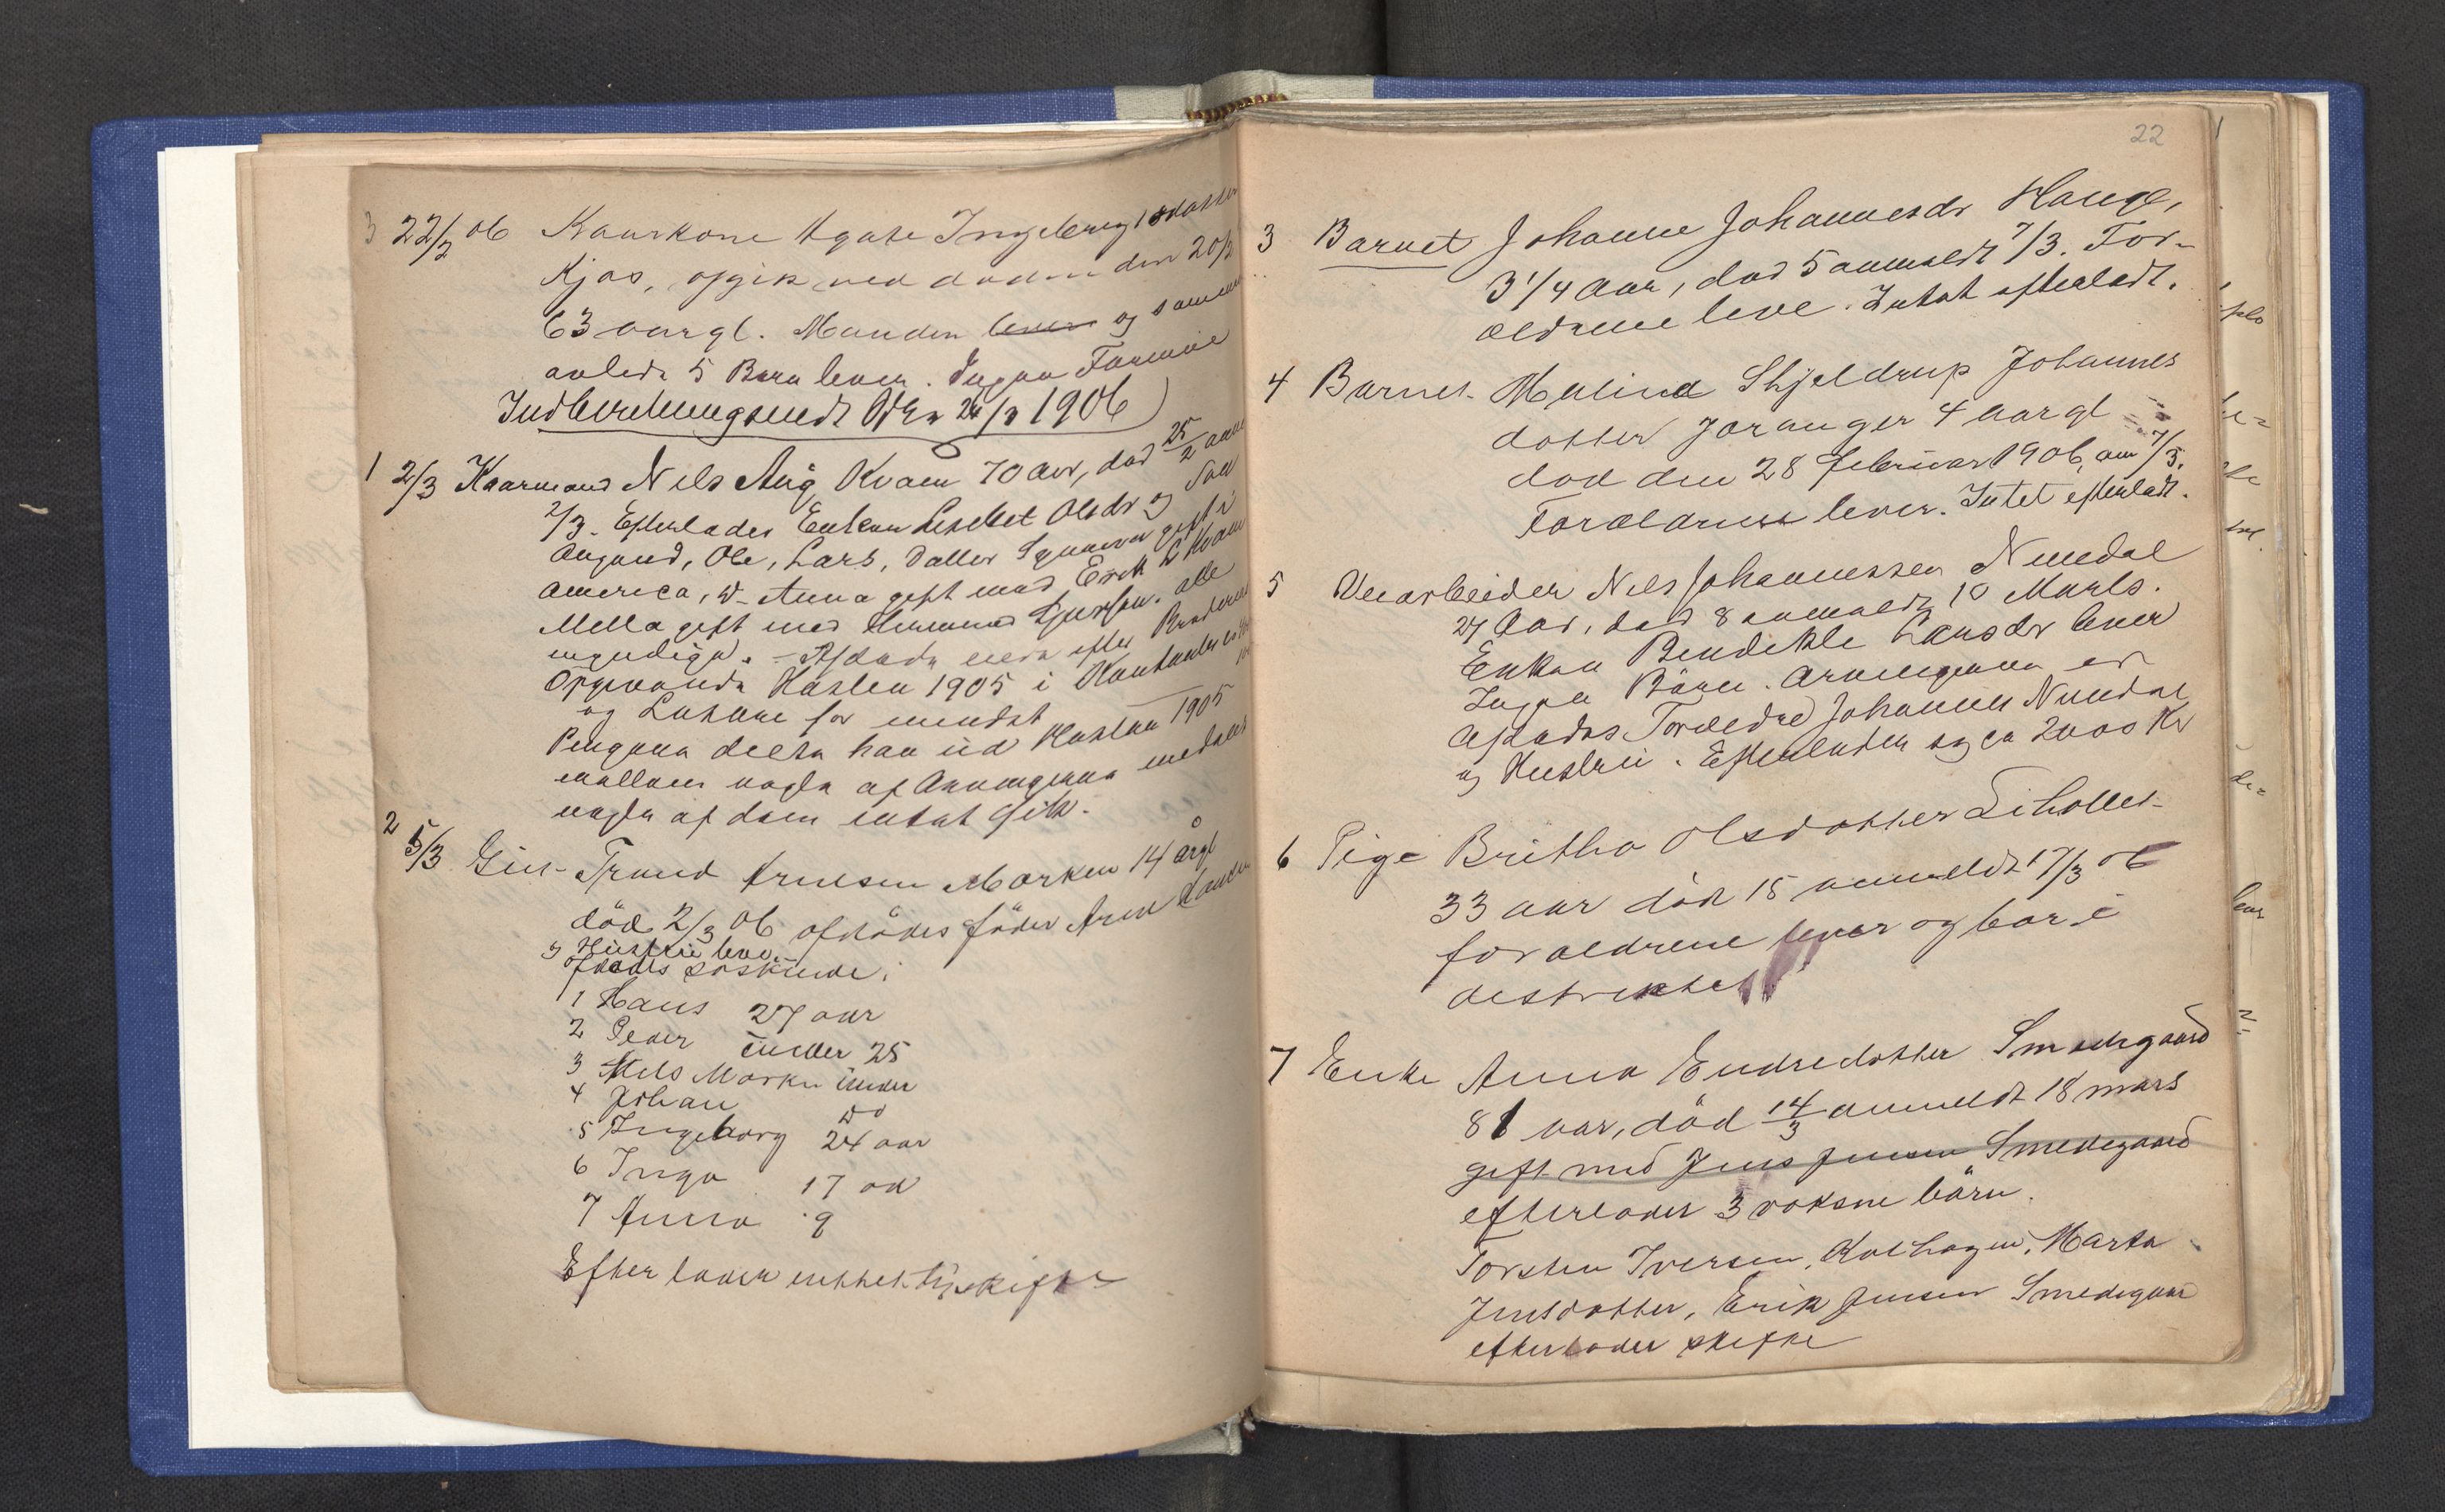 3 22/2 06 Kaarkone Agate Ingebrigtsdatter
Kjøs, afgik ved døden den 20/2
63 aargl. Manden lever og sammen
avlede 5 Børn lever. Ingen Formue
Indberetning sendt den 28/2 1906
1 2/3 Kaarmand Nils Aug. Kvam 70 aar, død 25/2 anm
2/3. Efterlader Enken Lisebet Olsdr og Søn
Augund, Ole, Lars, Datter Synneva gift i
America, D- Anna gift med Erik L Kvam
Mella gift med alle
myndige. - Afdøde efter Brødrene
Høsten 1905 i
og for mindst
Pengene delte han ud Høsten 1905
mellem nogle af Arvingerne medens
nogle af dem intet fik.
2 5/3 Gut- Trund Arnesen Marken 14 årgl
død 2/3 06 afdødes fader Arne
og Hustru lever
Afdødes søskende:
1 Hans 27 aar
2 Peder under 25
3 Nels Marken under
4 Johan do
5 Ingeborg 24 aar
6 Inga 17 aar
7 Anna 9
Efterlader intet til skifte
22
3 Barnet Johanne Johannesdr Hauge,
3 1/4 Aar, død 5 anmeldt 7/3. For-
ældrene leve. Intet efterladt.
4 Barnet- Malina Skjeldrup Johannes
dotter Joranger 4 aargl
død den 28 februar 1906, anm 7/3.
Forældrene lever. Intet efterladt.
5 Veiarbeider Nils Johannessen Nundal
27 Aar, død 8 anmeldt 10 Marts.
Enken Bendikte Larsdr lever
Ingen Børn. Arvingerne er
Afdødes Forældre Johannes Nundal
og Hustru. Efterlader sig ca 2000 Kr
6 Pige Britha Olsdotter
33 aar död 15 anmeldt 17/3 06
forældrene lever og bor i
destriktet
7 Enke Anna Endredotter Smedegaard
81 aar, död 14/3 anmeldt 18 mars
gift med Jens Jensen Smedegaard
efterlader 3 voksne börn.
Torsten Iversen, Kolhagen, Marta
Jensdotter, Erik Jensen Smedegaar
efterlader skifte